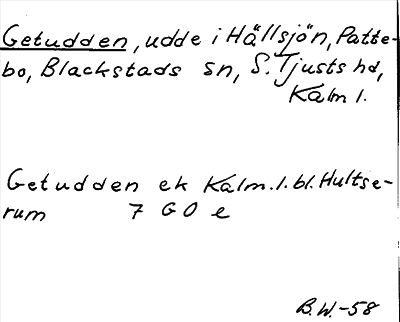 Getudden, udde i Hällsjön, Patte-
bo, Blackstads sn, S. Tjusts hd,
Kalm l.
Getudden ek Kalm. l. bl. Hultse-
rum 7 G O e
B.W.-58